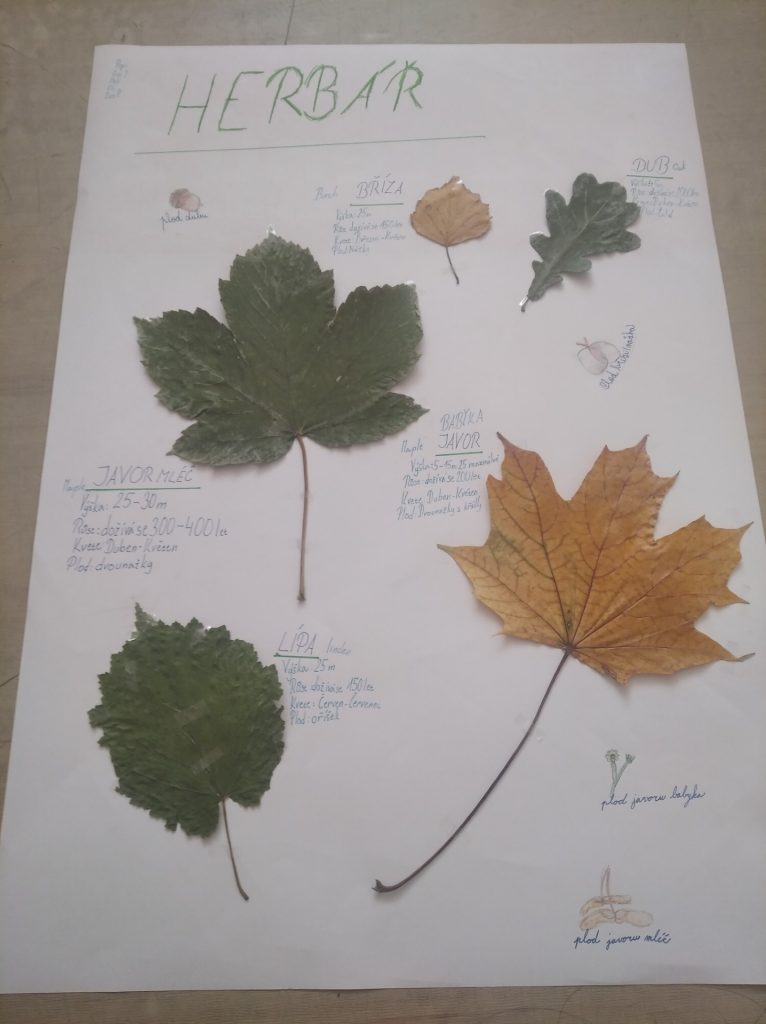 HERBÁŘ
plod dubu
Birch BŘÍZA
Výška: 25m
Růse: dožívá se 150 let
Kvete: Březen-Květen
Plod:
DUB Oak
Kvete: Duben-Květen
Plod: žalud
plod břízi/nažka
Maple JAVOR MLÉČ
Výška: 25-30m
Růse: dožívá se 300-400 let
Kvete: Duben-Květen
Plod: dvounažky
BABIKA
Maple JAVOR
Výška: 5-15m 25 maximální
Růse: dožívá se 200 let
Kvete: Duben-Květen
Plod: Dvounažky s křídly
LÍPA linden
Výška: 25m
Růse: dožívá se 150 let
Kvete: Červen-Červenec
Plod: oříšek
plod javoru babyka
plod javoru mléč